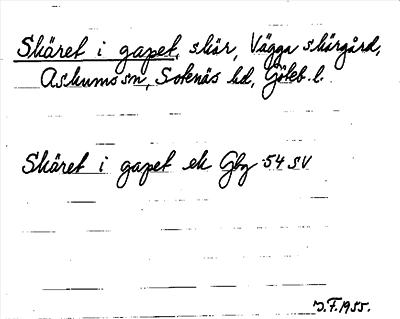 Skäret i gapet, skär, Vägga skärgård,
Askums sn, Sotenäs hd, Göteb. l.
Skäret i gapet ek Gbg 54 SV
J.F. 1955.